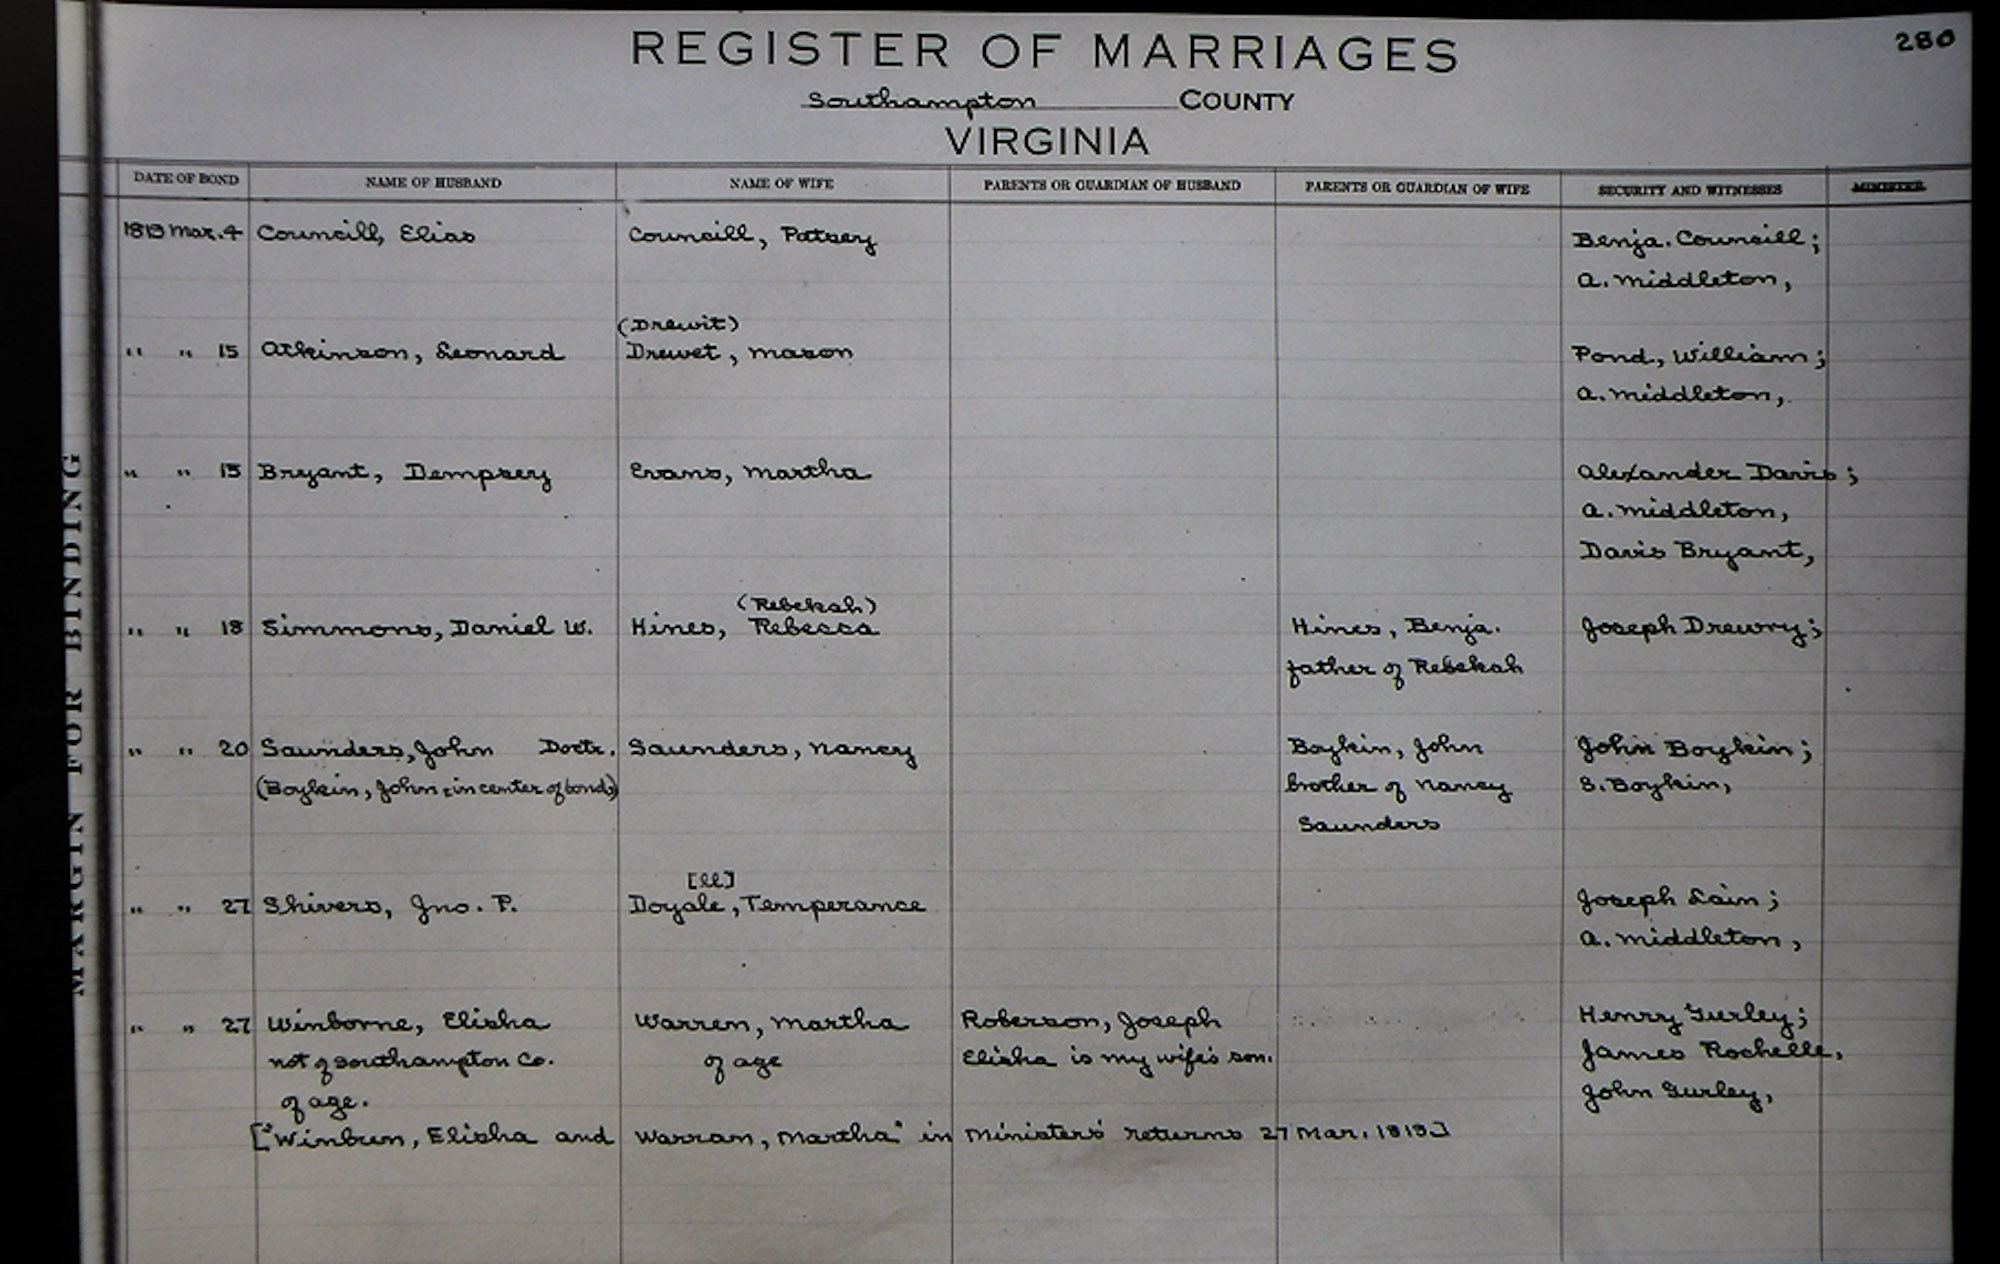 REGISTER OF MARRIAGES
280
Southampton COUNTY
VIRGINIA
DATE OF BOND NAME OF HUSBAND NAME OF WIFE PARENTS OR GUARDIAN OF HUSBAND PARENTS OR GUARDIAN OF WIFE SECURITY AND WITNESSES MINISTER
1813 Mar. 4 Councill, Elias Councill, Patsey Benja. Councill;
A. Middleton,
(Drewit)
" " 15 Atkinson, Leonard Drewet, Mason Pond, William;
A. Middleton,
" " 15 Bryant, Dempsey Evans, Martha Alexander Davis;
A. Middleton,
Davis Bryant,
(Rebekah)
" " 18 Simmons, Daniel W. Hines, Rebecca Hines, Benja. Joseph Drewry;
father of Rebekah
" " 20 Saunders, John Doctr. Saunders, Nancy Boykin, John John Boykin;
(Boykin, John, in center of bond) brother of Nancy S. Boykin,
Saunders
[ll]
" " 27 Shivers, Jno. P. Doyale, Temperance Joseph Lain;
A. Middleton,
" " 27 Winborne, Elisha Warren, Martha Roberson, Joseph Henry Gurley;
not of Southampton Co. of age Elisha is my wife's son. James Rochelle,
of age. John Gurley,
["Winbun, Elisha and Warran, Martha" in Ministers' returns 27 Mar. 1813]
MARGIN FOR BINDING